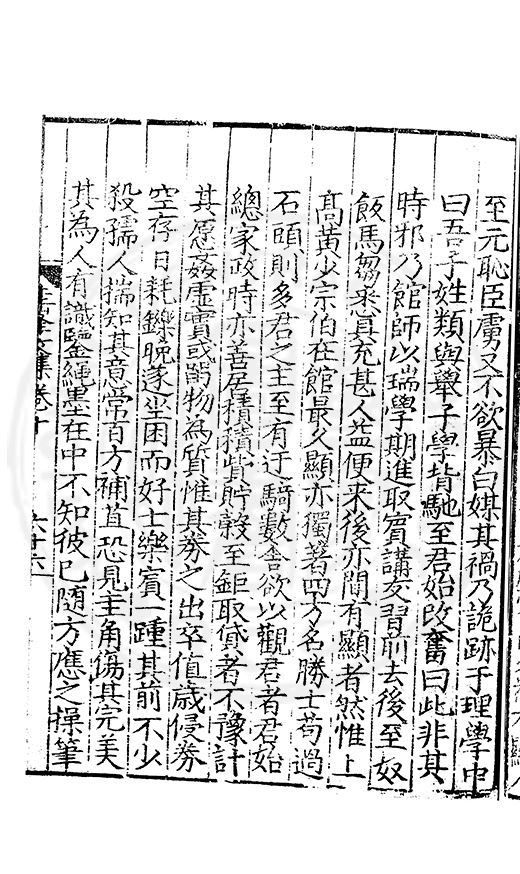 至元恥臣虜又不欲暴白媒其禍乃詭跡于理學中
曰吾子姓類與舉子學背馳至君始改奮曰此非其
時邪乃館師以瑞學期進取賓講友習前去後至奴
飯馬芻悉具充甚人益便来後亦間有顯者然惟上
髙黄少宗伯在館最久顯亦獨著四方名勝士苟過
石頭則多君之主至有迂騎數舍欲以觀君者君始
總家政時亦善居積積貲貯穀至鉅取貸者不豫計
其愿姦虛實或無物為質惟其券之出卒值歲侵券
空存日耗鑠晚遂坐困而好士樂賓一踵其前不少
殺孺人揣知其意常百方補苴恐見主角傷其完美
其為人有識鑒繩墨在中不知彼已随方應之操筆
卷十
六十六